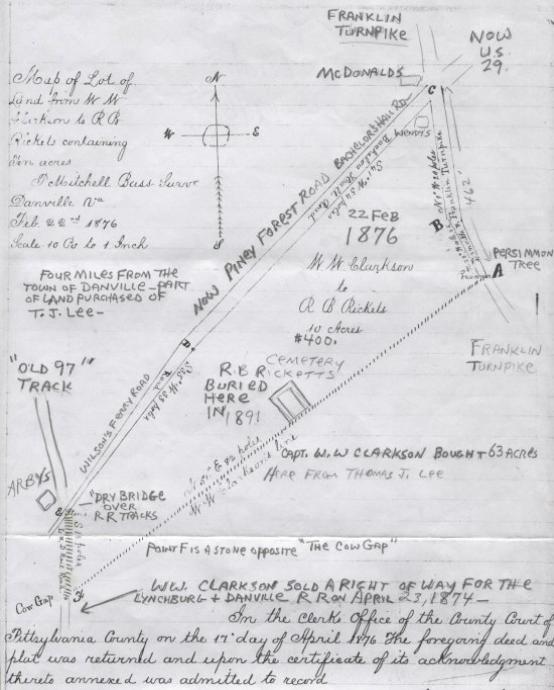 FRANKLIN
TURNPIKE
NOW
U.S.
29.
McDONALDS
C
WENDYS
Map of Lot of
Land from W W
Clarkson to R B
Rickets containing
ten acres
J Mitchell Buss Survr
Danville Va
Feb. 22nd 1876
Scale 10 Po to 1 Inch
N
W
S
FOUR MILES FROM THE
TOWN OF DANVILLE - PART
OF LAND PURCHASED OF
T. J. LEE -
NOW PINEY FOREST ROAD
BACHELORS HALL RD.
22 FEB
1876
W W. Clarkson
to
R B Rickets
10 Acres
$400.
B
Franklin Turnpike
462'
PERSIMMON
TREE
A
FRANKLIN
TURNPIKE
"OLD 97"
TRACK
WILSON'S FERRY ROAD
Road
CEMETERY
R.B.
RICKETTS
BURIED
HERE
IN 1891
CAPT. W.W CLARKSON BOUGHT 63 ACRES
HERE FROM THOMAS J. LEE
W W Clarkson's line
ARBYS
"DRY BRIDGE
OVER
RR TRACKS
POINT F IS A STONE OPPOSITE "THE COW GAP"
Cow Gap
W.W. CLARKSON SOLD A RIGHT OF WAY FOR THE
LYNCHBURG & DANVILLE R R ON APRIL 23, 1874 -
In the Clerk's Office of the County Court of
Pittsylvania County on the 17" day of April 1876 The foregoing deed and
plat was returned and upon the certificate of its acknowledgment
thereto annexed was admitted to record